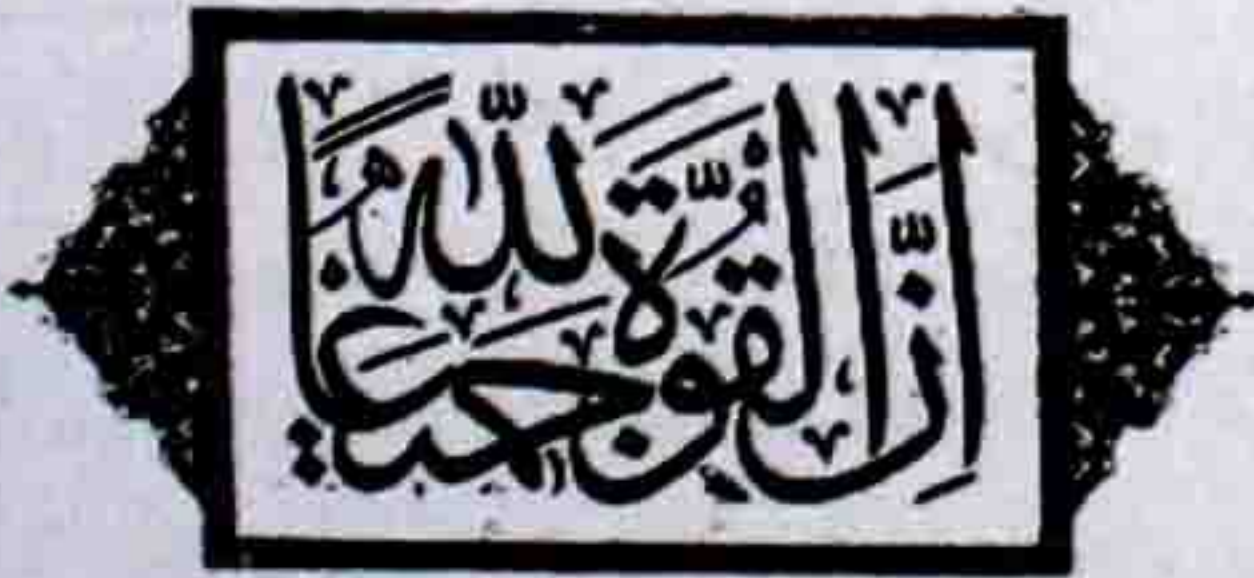 اِنَّ الْقُوَّةَ لِلّٰهِ جَمِيْعًا